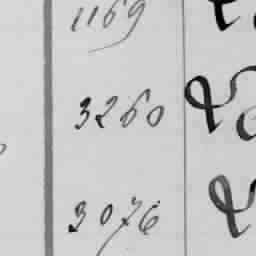 1169
3260
3076